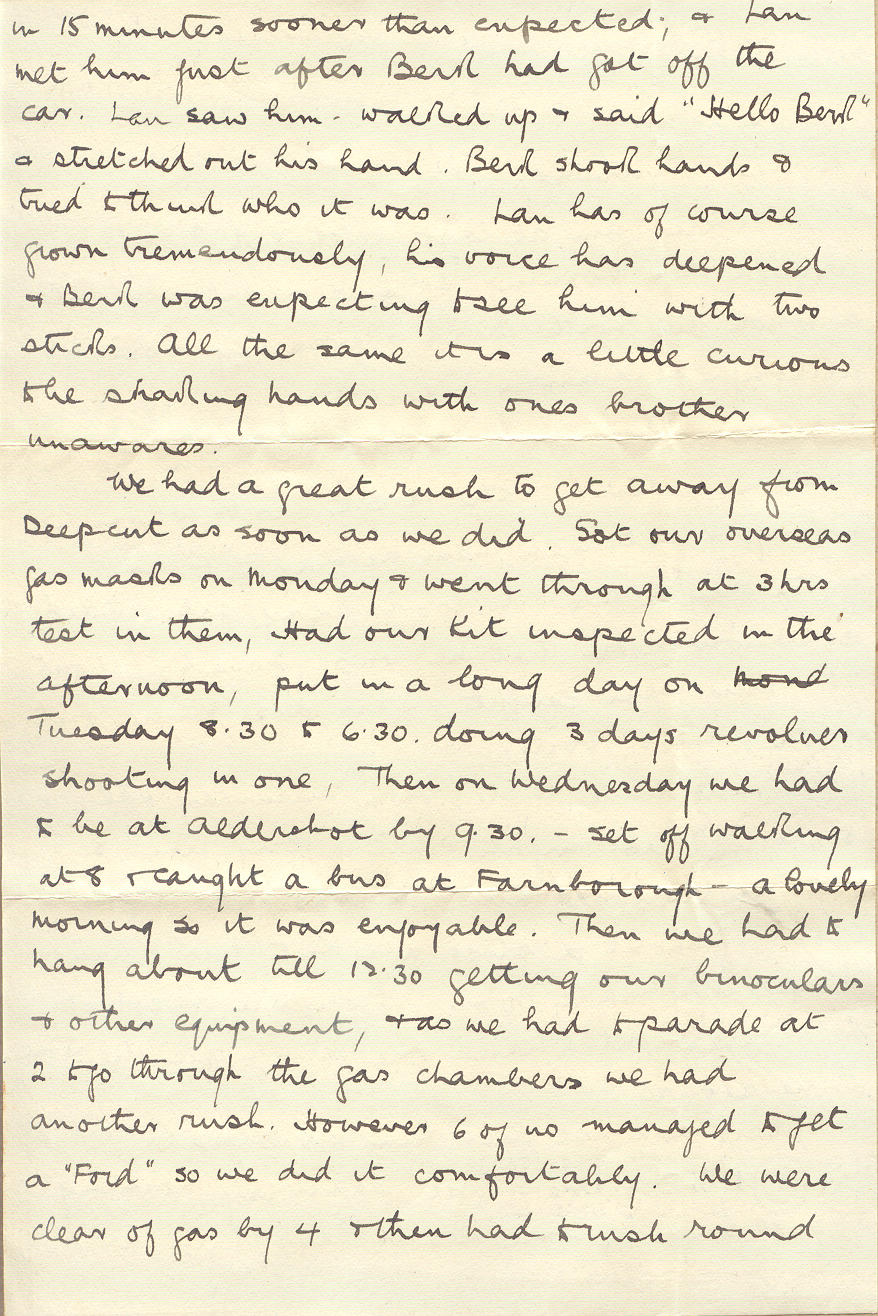 in 15 minutes sooner than expected; & Ian
met him just after Berl had got off the
car. Ian saw him - walked up & said "Hello Berl"
& stretched out his hand. Berl shook hands &
tried to think who it was. Ian has of course
grown tremendously, his voice has deepened
& Berl was expecting to see him with two
sticks. All the same it is a little curious
to be shaking hands with ones brother
unawares.
We had a great rush to get away from
Deepcut as soon as we did. Got our overseas
gas masks on Monday & went through at 3 hrs
test in them, Had our Kit inspected in the
afternoon, put in a long day on Mond
Tuesday 8.30 to 6.30. doing 3 days revolver
shooting in one, Then on Wednesday we had
to be at Aldershot by 9.30. - set off walking
at 8 & caught a bus at Farnborough - a lovely
morning so it was enjoyable. Then we had to
hang about till 12.30 getting our binoculars
& other equipment, & as we had to parade at
2 to go through the gas chambers we had
another rush. However 6 of us managed to get
a "Ford" so we did it comfortably. We were
clear of gas by 4 & then had to rush round